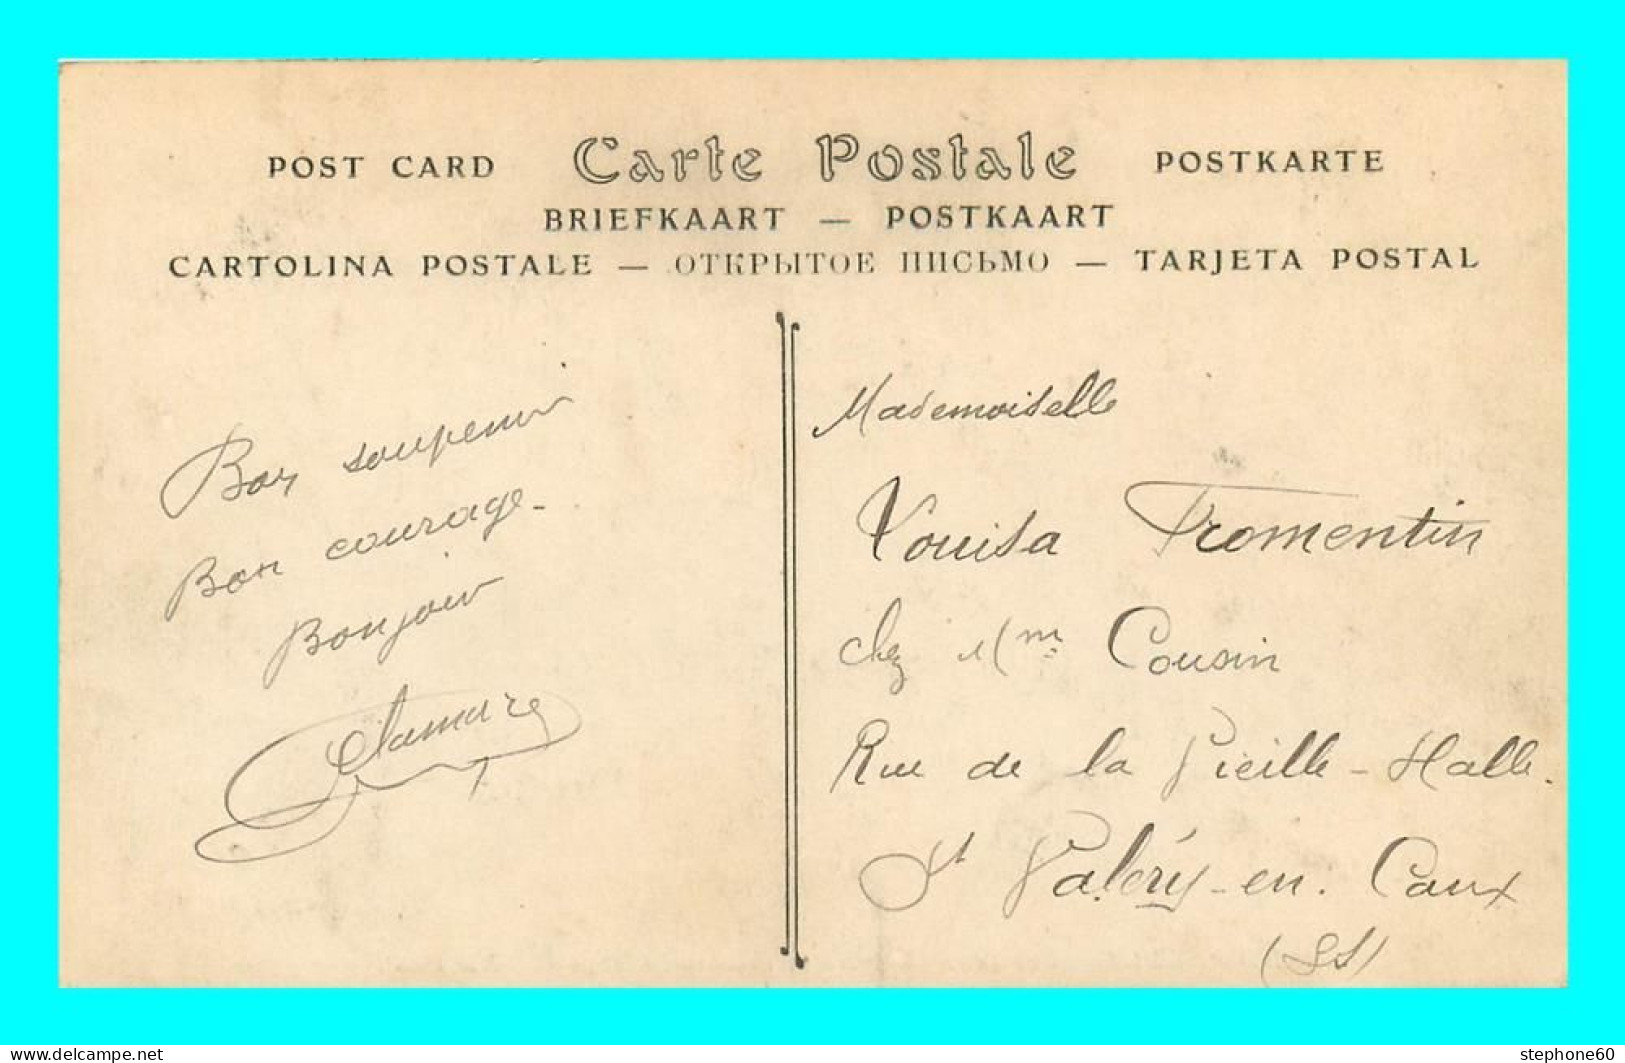 POST CARD Carte Postale POSTKARTE
BRIEFKAART — POSTKAART
CARTOLINA POSTALE — ОТКРЫТОЕ ПИСЬМО — TARJETA POSTAL
Bon souvenir
Bon courage -
Bonjour
Mademoiselle
Louisa Fromentin
chez Mme Cousin
Rue de la Vieille-Halle.
St Valéry-en. Caux
(SI)
www.delcampe.net
stephone60